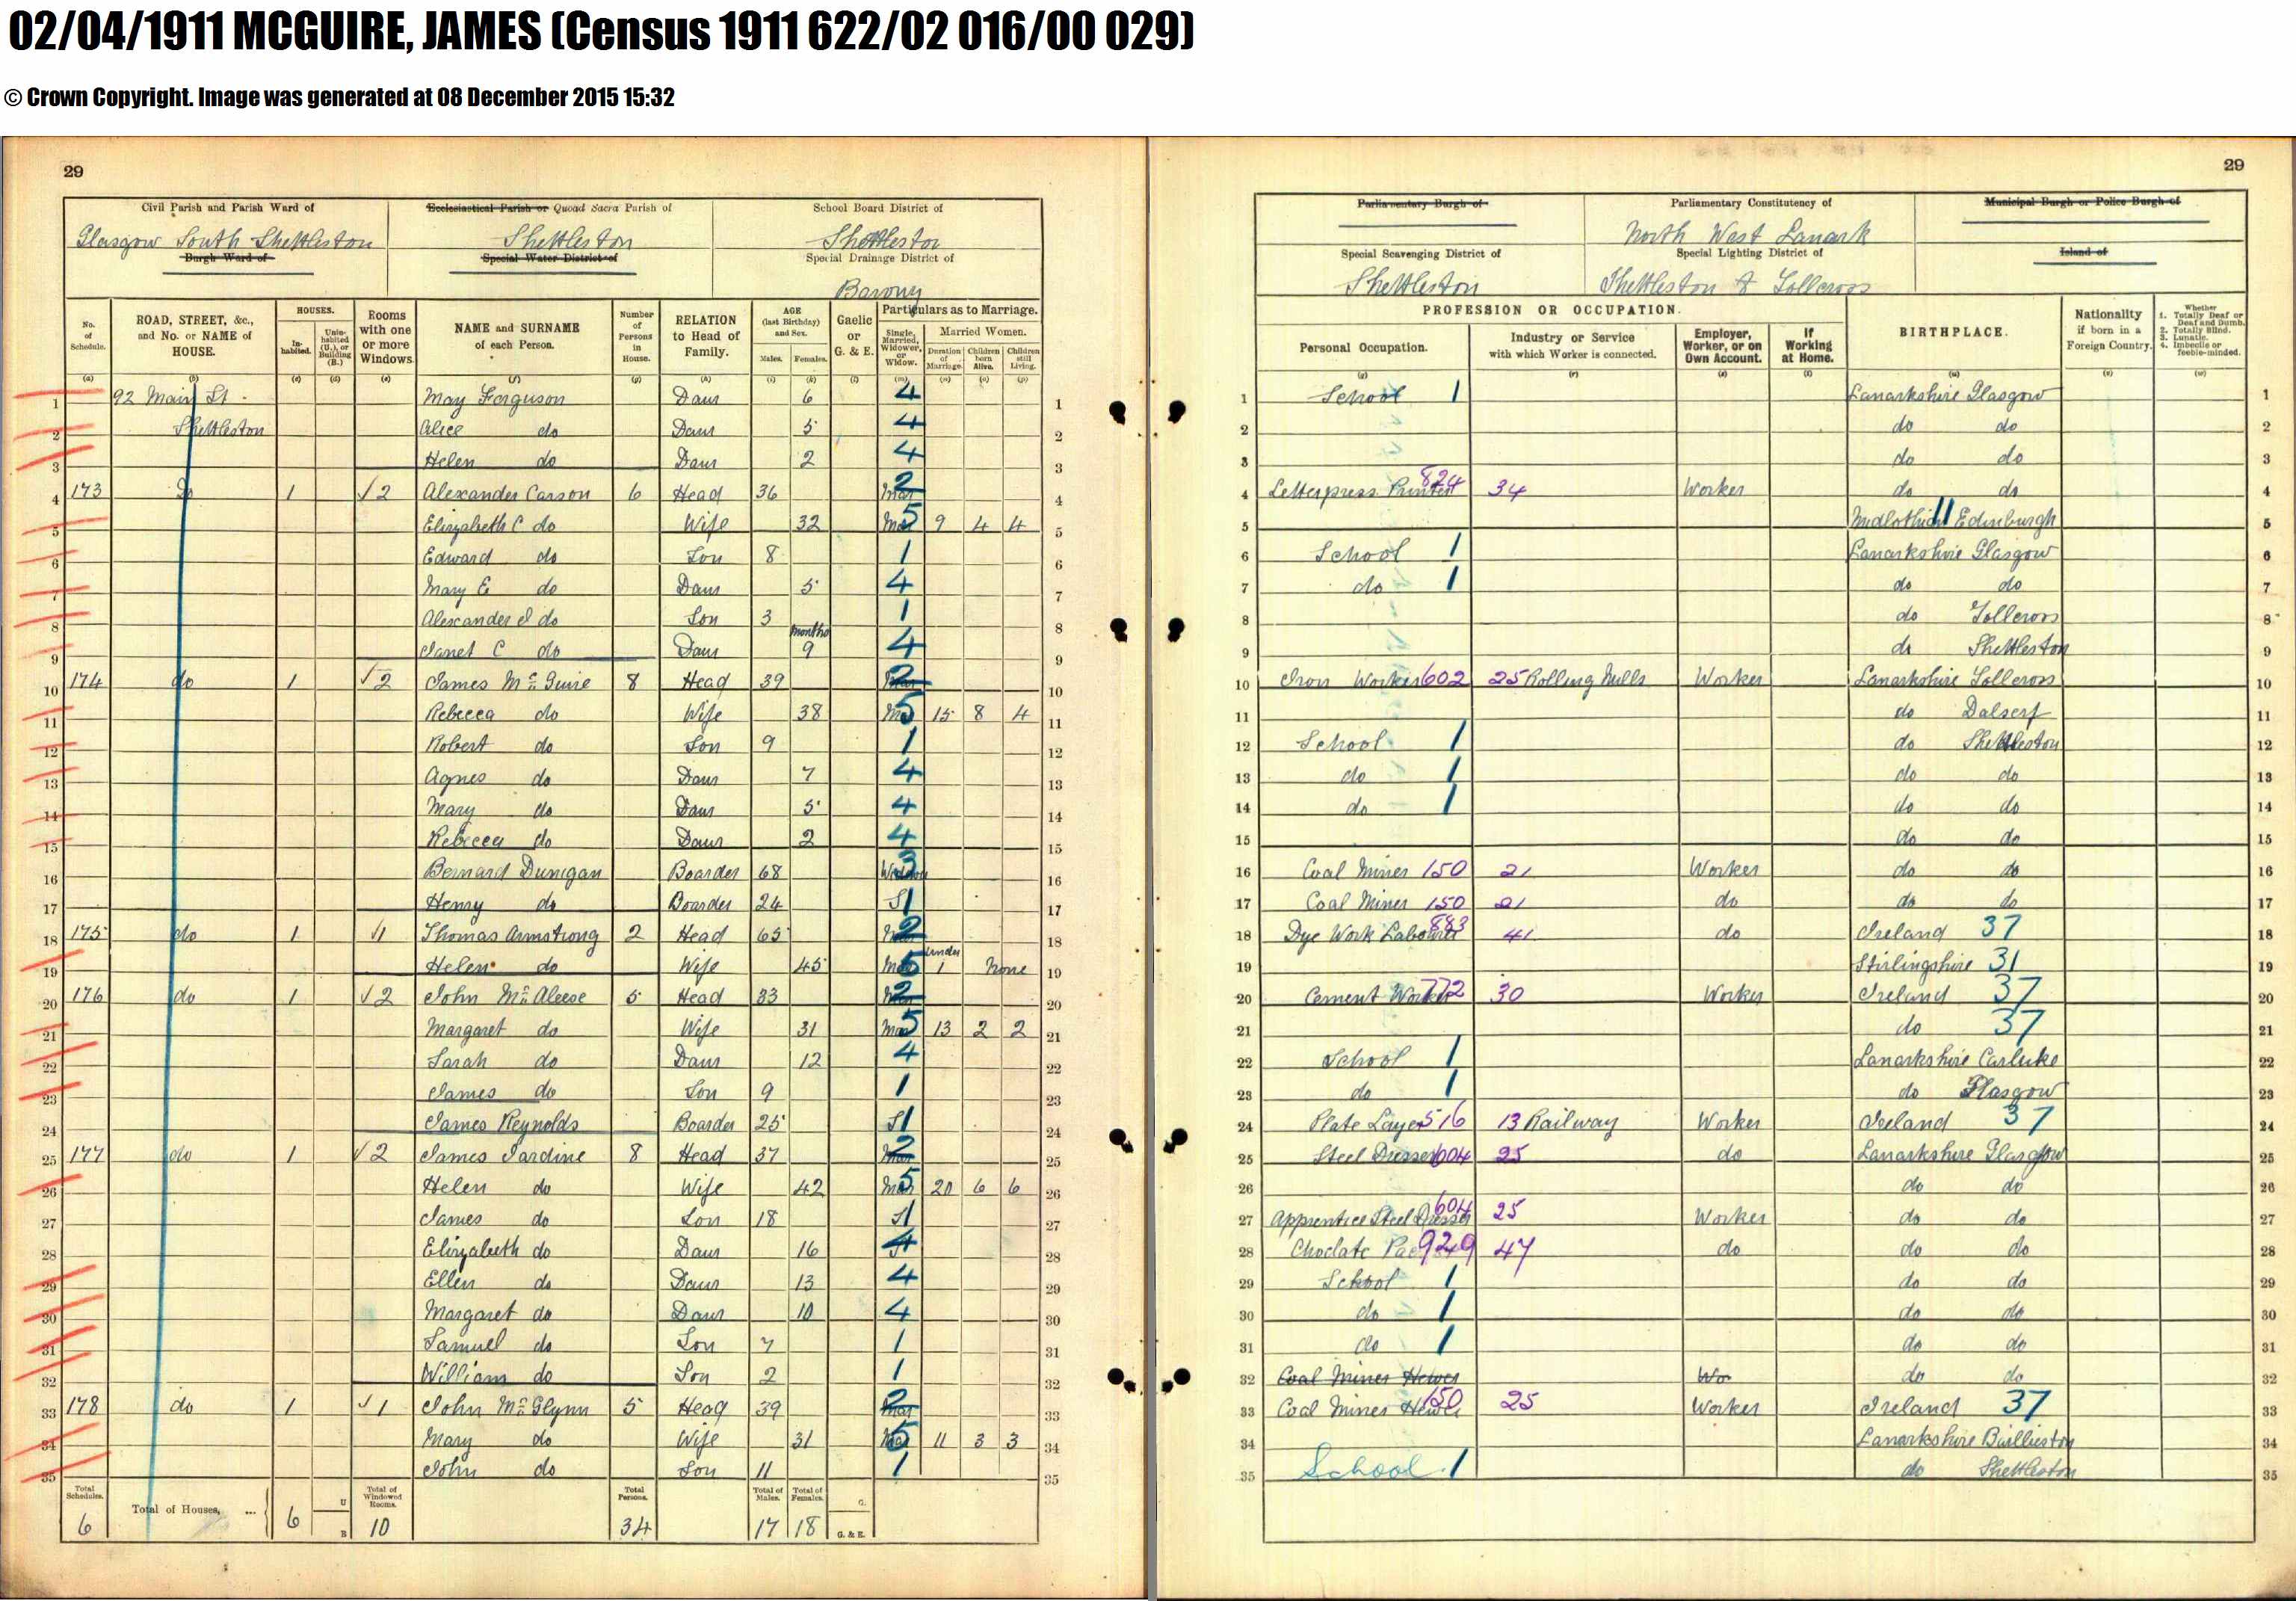 02/04/1911 MCGUIRE, JAMES (Census 1911 622/02 016/00 029)
© Crown Copyright. Image was generated at 08 December 2015 15:32
29
Civil Parish and Parish Ward of
Glasgow South Shettleston
Burgh Ward of
Ecclesiastical Parish or Quoad Sacra Parish of
Shettleston
Special Water District of
School Board District of
Shettleston
Special Drainage District of
Barony
No. of Schedule.
ROAD, STREET, &c., and No. or NAME of HOUSE.
HOUSES.
Inhabited.
Uninhabited (U.), or Building (B.)
Rooms with one or more Windows.
NAME and SURNAME of each Person.
Number of Persons in House.
RELATION to Head of Family.
AGE (last Birthday) and Sex.
Males. Females.
Gaelic or G. & E.
Particulars as to Marriage.
Single, Married, Widower, or Widow.
Married Women.
Duration of Marriage. Children born Alive. Children still Living.
1 92 Main St. May Ferguson Daur 6 4 1
2 Shettleston Alice do Daur 5 4 2
3 Helen do Daur 2 4 3
4 173 Do 1 √2 Alexander Carson 6 Head 36 Mar 2 4
5 Elizabeth C do Wife 32 Mar 5 9 4 4 5
6 Edward do Son 8 1 6
7 Mary E do Daur 5 4 7
8 Alexander J do Son 3 1 8
9 Janet C do Daur months 9 4 9
10 174 do 1 √2 James McGuire 8 Head 39 Mar 2 10
11 Rebecca do Wife 38 Mar 5 15 8 4 11
12 Robert do Son 9 1 12
13 Agnes do Daur 7 4 13
14 Mary do Daur 5 4 14
15 Rebecca do Daur 2 4 15
16 Bernard Dunigan Boarder 68 Widower 3 16
17 Henry do Boarder 24 S 1 17
18 175 do 1 √1 Thomas Armstrong 2 Head 65 Mar 2 18
19 Helen do Wife 45 Mar 5 under 1 None 19
20 176 do 1 √2 John McAleese 5 Head 33 Mar 2 20
21 Margaret do Wife 31 Mar 5 13 2 2 21
22 Sarah do Daur 12 4 22
23 James do Son 9 1 23
24 James Reynolds Boarder 25 S 1 24
25 177 do 1 √2 James Jardine 8 Head 37 Mar 2 25
26 Helen do Wife 42 Mar 5 20 6 6 26
27 James do Son 18 S 1 27
28 Elizabeth do Daur 16 4 28
29 Ellen do Daur 13 4 29
30 Margaret do Daur 10 4 30
31 Samuel do Son 7 1 31
32 William do Son 2 1 32
33 178 do 1 √1 John McGlynn 5 Head 39 Mar 2 33
34 Mary do Wife 31 Mar 5 11 3 3 34
35 John do Son 11 1 35
Total Schedules. 6
Total of Houses, ... 6 U B
Total of Windowed Rooms. 10
Total Persons. 34
Total of Males. 17
Total of Females. 18
G. G. & E.
29
Parliamentary Burgh of
Special Scavenging District of
Shettleston
Parliamentary Constitutency of
North West Lanark
Special Lighting District of
Shettleston & Tollcross
Municipal Burgh or Police Burgh of
Island of
PROFESSION OR OCCUPATION.
Personal Occupation.
Industry or Service with which Worker is connected.
Employer, Worker, or on Own Account.
If Working at Home.
BIRTHPLACE.
Nationality if born in a Foreign Country.
Whether 1. Totally Deaf or Deaf and Dumb. 2. Totally Blind. 3. Lunatic. 4. Imbecile or feeble-minded.
1 School 1 Lanarkshire Glasgow 1
2 do do 2
3 do do 3
4 Letterpress Printer 824 34 Worker do do 4
5 Midlothian Edinburgh 5
6 School 1 Lanarkshire Glasgow 6
7 do 1 do do 7
8 do Tollcross 8
9 do Shettleston 9
10 Iron Worker 602 25 Rolling Mills Worker Lanarkshire Tollcross 10
11 do Dalserf 11
12 School 1 do Shettleston 12
13 do 1 do do 13
14 do 1 do do 14
15 do do 15
16 Coal Miner 150 21 Worker do do 16
17 Coal Miner 150 21 do do do 17
18 Dye Work Labourer 883 41 do Ireland 37 18
19 Stirlingshire 31 19
20 Cement Worker 772 30 Worker Ireland 37 20
21 do 37 21
22 School 1 Lanarkshire Carluke 22
23 do 1 do Glasgow 23
24 Plate Layer 516 13 Railway Worker Ireland 37 24
25 Steel Dresser 604 25 do Lanarkshire Glasgow 25
26 do do 26
27 Apprentice Steel Dresser 604 25 Worker do do 27
28 Choclate 929 47 do do do 28
29 School 1 do do 29
30 do 1 do do 30
31 do 1 do do 31
32 Coal Miner Hewer Wo do do 32
33 Coal Miner Hewer 150 25 Worker Ireland 37 33
34 Lanarkshire Baillieston 34
35 School 1 do Shettleston 35